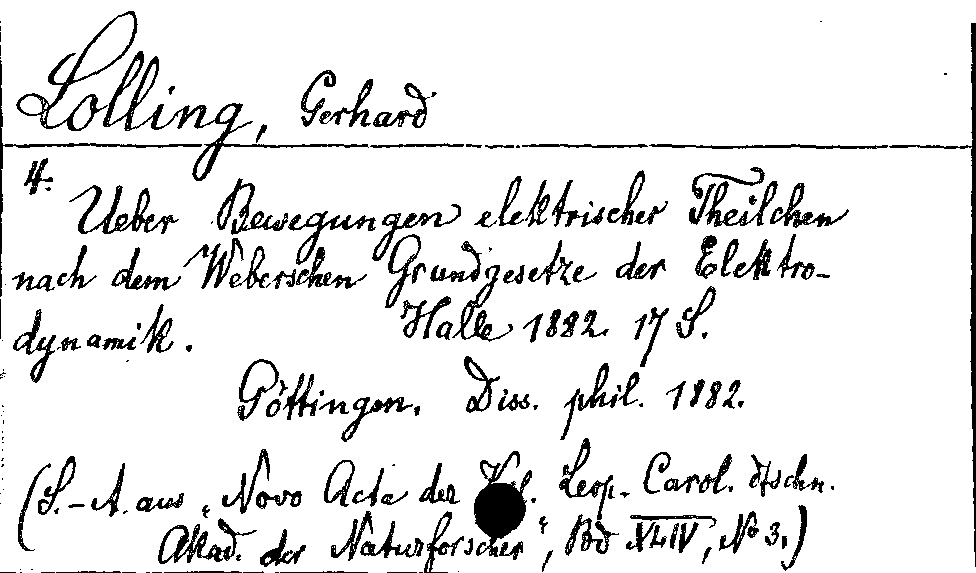 Lolling, Gerhard
4:
Ueber Bewegungen elektrischer Theilchen
nach dem Weberschen Grundgesetze der Elektro-
dynamik. Halle 1882. 17 S.
Göttingen. Diss. phil. 1882.
(S.-A. aus „Novo Acta der Leop. Carol. dtschn.
Akad. der Naturforscher“, Bd XLIV, No 3.)